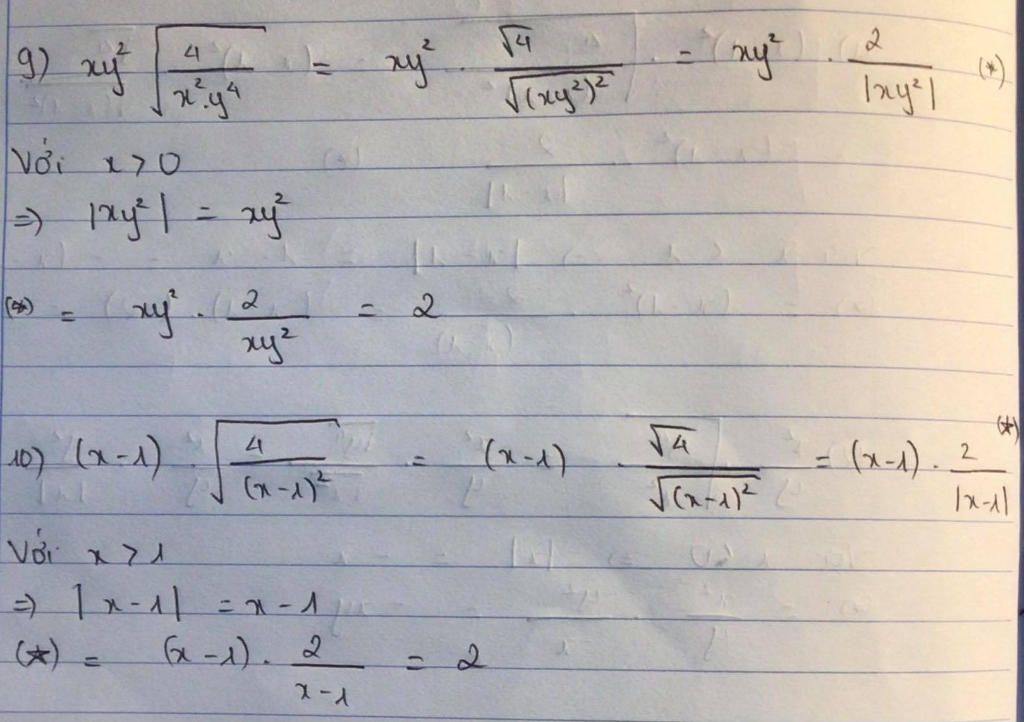 9) xy² √(4/(x².y⁴)) = xy² . √4/√((xy²)²) = xy² . 2/|xy²| (*)
Với x > 0
=> |xy²| = xy²
(*) = xy² . 2/(xy²) = 2
10) (x-1) . √(4/(x-1)²) = (x-1) . √4/√((x-1)²) = (x-1) . 2/|x-1| (*)
Với x > 1
=> |x-1| = x-1
(*) = (x-1) . 2/(x-1) = 2